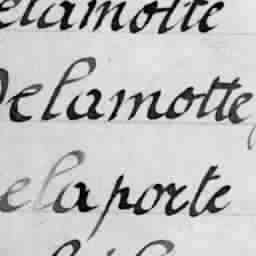 elamotte
Delamotte,
elaporte